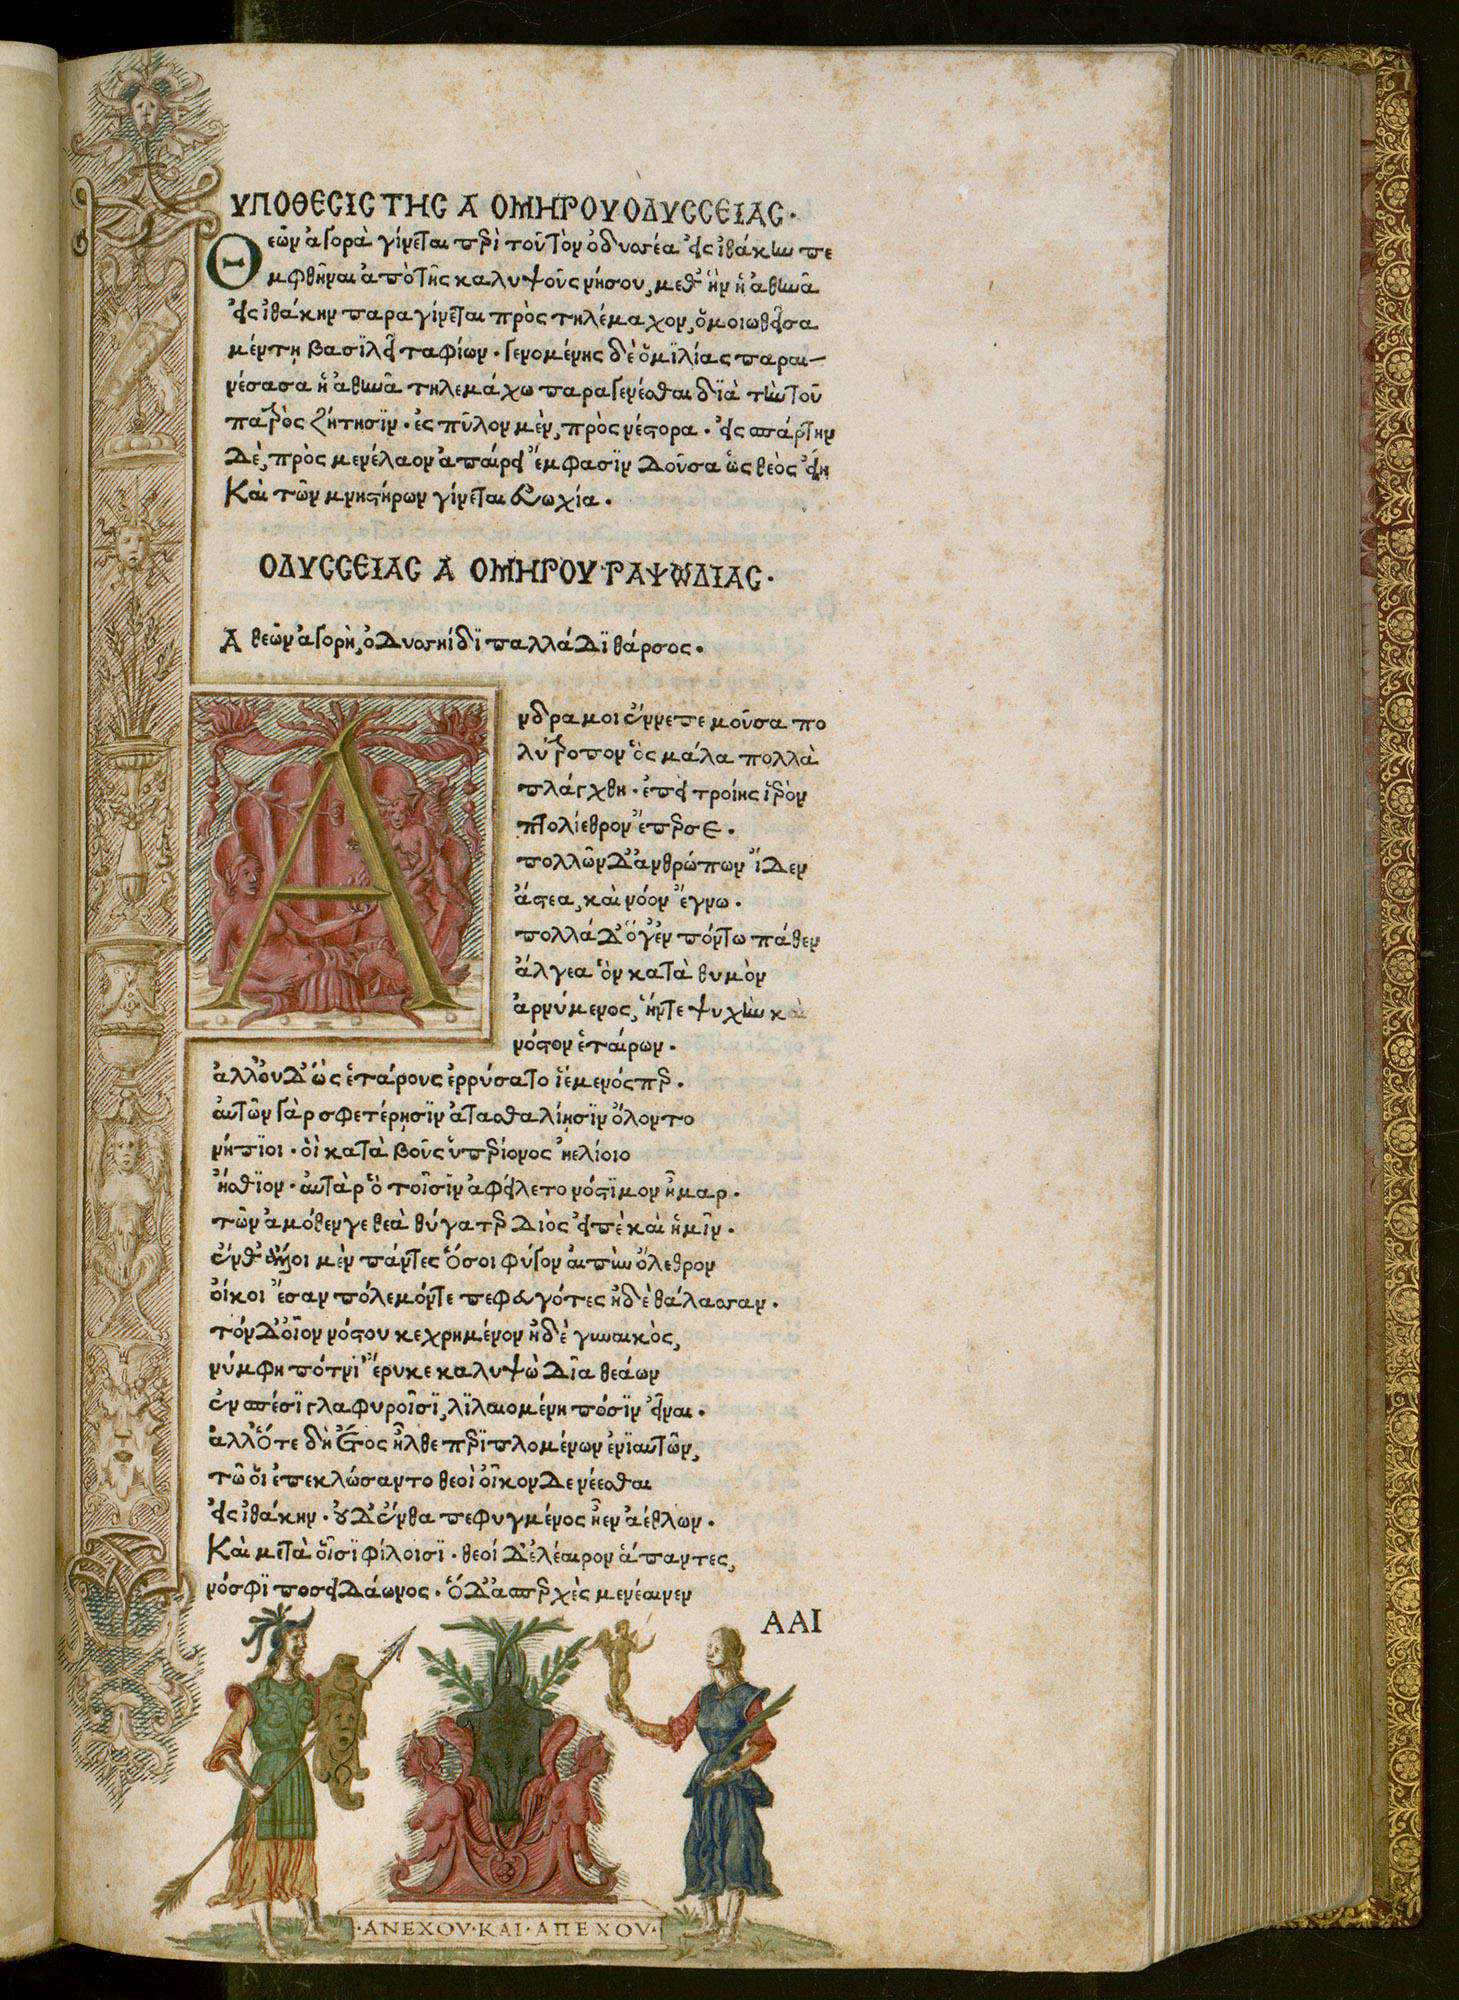 ΥΠΟΘΕϹΙϹ ΤΗϹ Α ΟΜΗΡΟΥ ΟΔΥϹϹΕΙΑϹ·
Θεῶν ἀγορὰ γίνεται πρὶ τοῦ τὸν ὀδυσσέα εἰς ἰθάκην πε
μφθῆναι ἀπὸ τῆς καλυψοῦς νήσου, μεθ' ἣν ἡ ἀθηνᾶ
εἰς ἰθάκην παραγίνεται πρὸς τηλέμαχον, ὁμοιωθεῖσα
μέντη βασϊλεῖ ταφίων· γενομένης δὲ ὁμϊλίας παραι-
νέσασα ἡ ἀθηνᾶ τηλεμάχω παραγενέσθαι δϊὰ τὴν τοῦ
πατρὸς ζήτησϊν· ἐς πῦλον μὲν, πρὸς νέστορα· εἰς σπάρτην
Δὲ, πρὸς μενέλαον ἀπαίρει ἔμφασϊν δοῦσα ὡς θεὸς εἴη
Καὶ τῶν μνηστήρων γίνεται εὐωχία·
ΟΔΥϹϹΕΙΑϹ Α ΟΜΗΡΟΥ ΡΑΨΩΔΙΑϹ·
Α θεῶν ἀγορὴ, ὀδυσσηίδϊ παλλάδϊ θάρσος·
Ανδρα μοι ἔννεπε μοῦσα πο
λύτροπον ὃς μάλα πολλὰ
πλάγχθη· ἐπεὶ τροίης ἱερὸν
πτολίεθρον ἔπερσε·
πολλῶν δ' ἀνθρώπων ἴδεν
ἄστεα, καὶ νόον ἔγνω·
πολλά δ' ὅγ' ἐν πόντω πάθεν
ἄλγεα ὃν κατὰ θυμὸν
ἀρνύμενος, ἥντε ψυχὴν καὶ
νόστον ἑταίρων·
ἀλλ' οὐδ' ὣς ἑτάρους ἐρρύσατο ἱέμενός περ·
αὐτῶν γὰρ σφετέρησϊν ἀτασθαλίησϊν ὄλοντο
νήπϊοι· οἳ κατὰ βοῦς ὑπερίονος ἠελίοιο
ἤσθϊον· αὐτὰρ ὃ τοῖσϊν ἀφείλετο νόστϊμον ἦμαρ·
τῶν ἀμόθενγε θεὰ θύγατερ Διὸς εἰπὲ καὶ ἡμῖν·
ἔνθ' ἄλλοι μὲν πάντες ὅσοι φύγον αἰπὺν ὄλεθρον
οἴκοι ἔσαν πόλεμόντε πεφευγότες ἠδὲ θάλασσαν·
τόνδ' οἶον νόστου κεχρημένον ἠδὲ γυναικὸς,
νύμφη πότνϊ' ἔρυκε καλυψὼ δῖα θεάων
ἐν σπέσϊ γλαφυροῖσϊ, λϊλαιομένη πόσϊν εἶναι·
ἀλλ' ὅτε δὴ ἔτος ἦλθε περϊπλομένων ἐνϊαυτῶν,
τῶ οἱ ἐπεκλώσαντο θεοὶ οἶκον δε νέεσθαι
εἰς ἰθάκην· οὐδ' ἔνθα πεφυγμένος ἦεν ἀέθλων·
Καὶ μετὰ οἷσϊ φίλοισϊ· θεοί δ' ἐλέαιρον ἅπαντες,
νόσφϊ ποσειδάωνος· ὁ δ' ἀσπερχὲς μενέαινεν
ΑΑΙ
·ΑΝΕΧΟΥ·ΚΑΙ·ΑΠΕΧΟΥ·